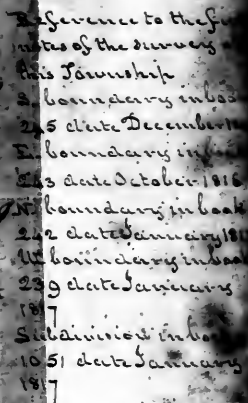 Reference to the
notes of the survey
this Township
S. boundary in book
245 date December
E. boundary in
243 date October 1816
N. boundary in book
242 date January 181
W. boundary in book
239 date January
1817
Subdivision in
1051 date January
1817